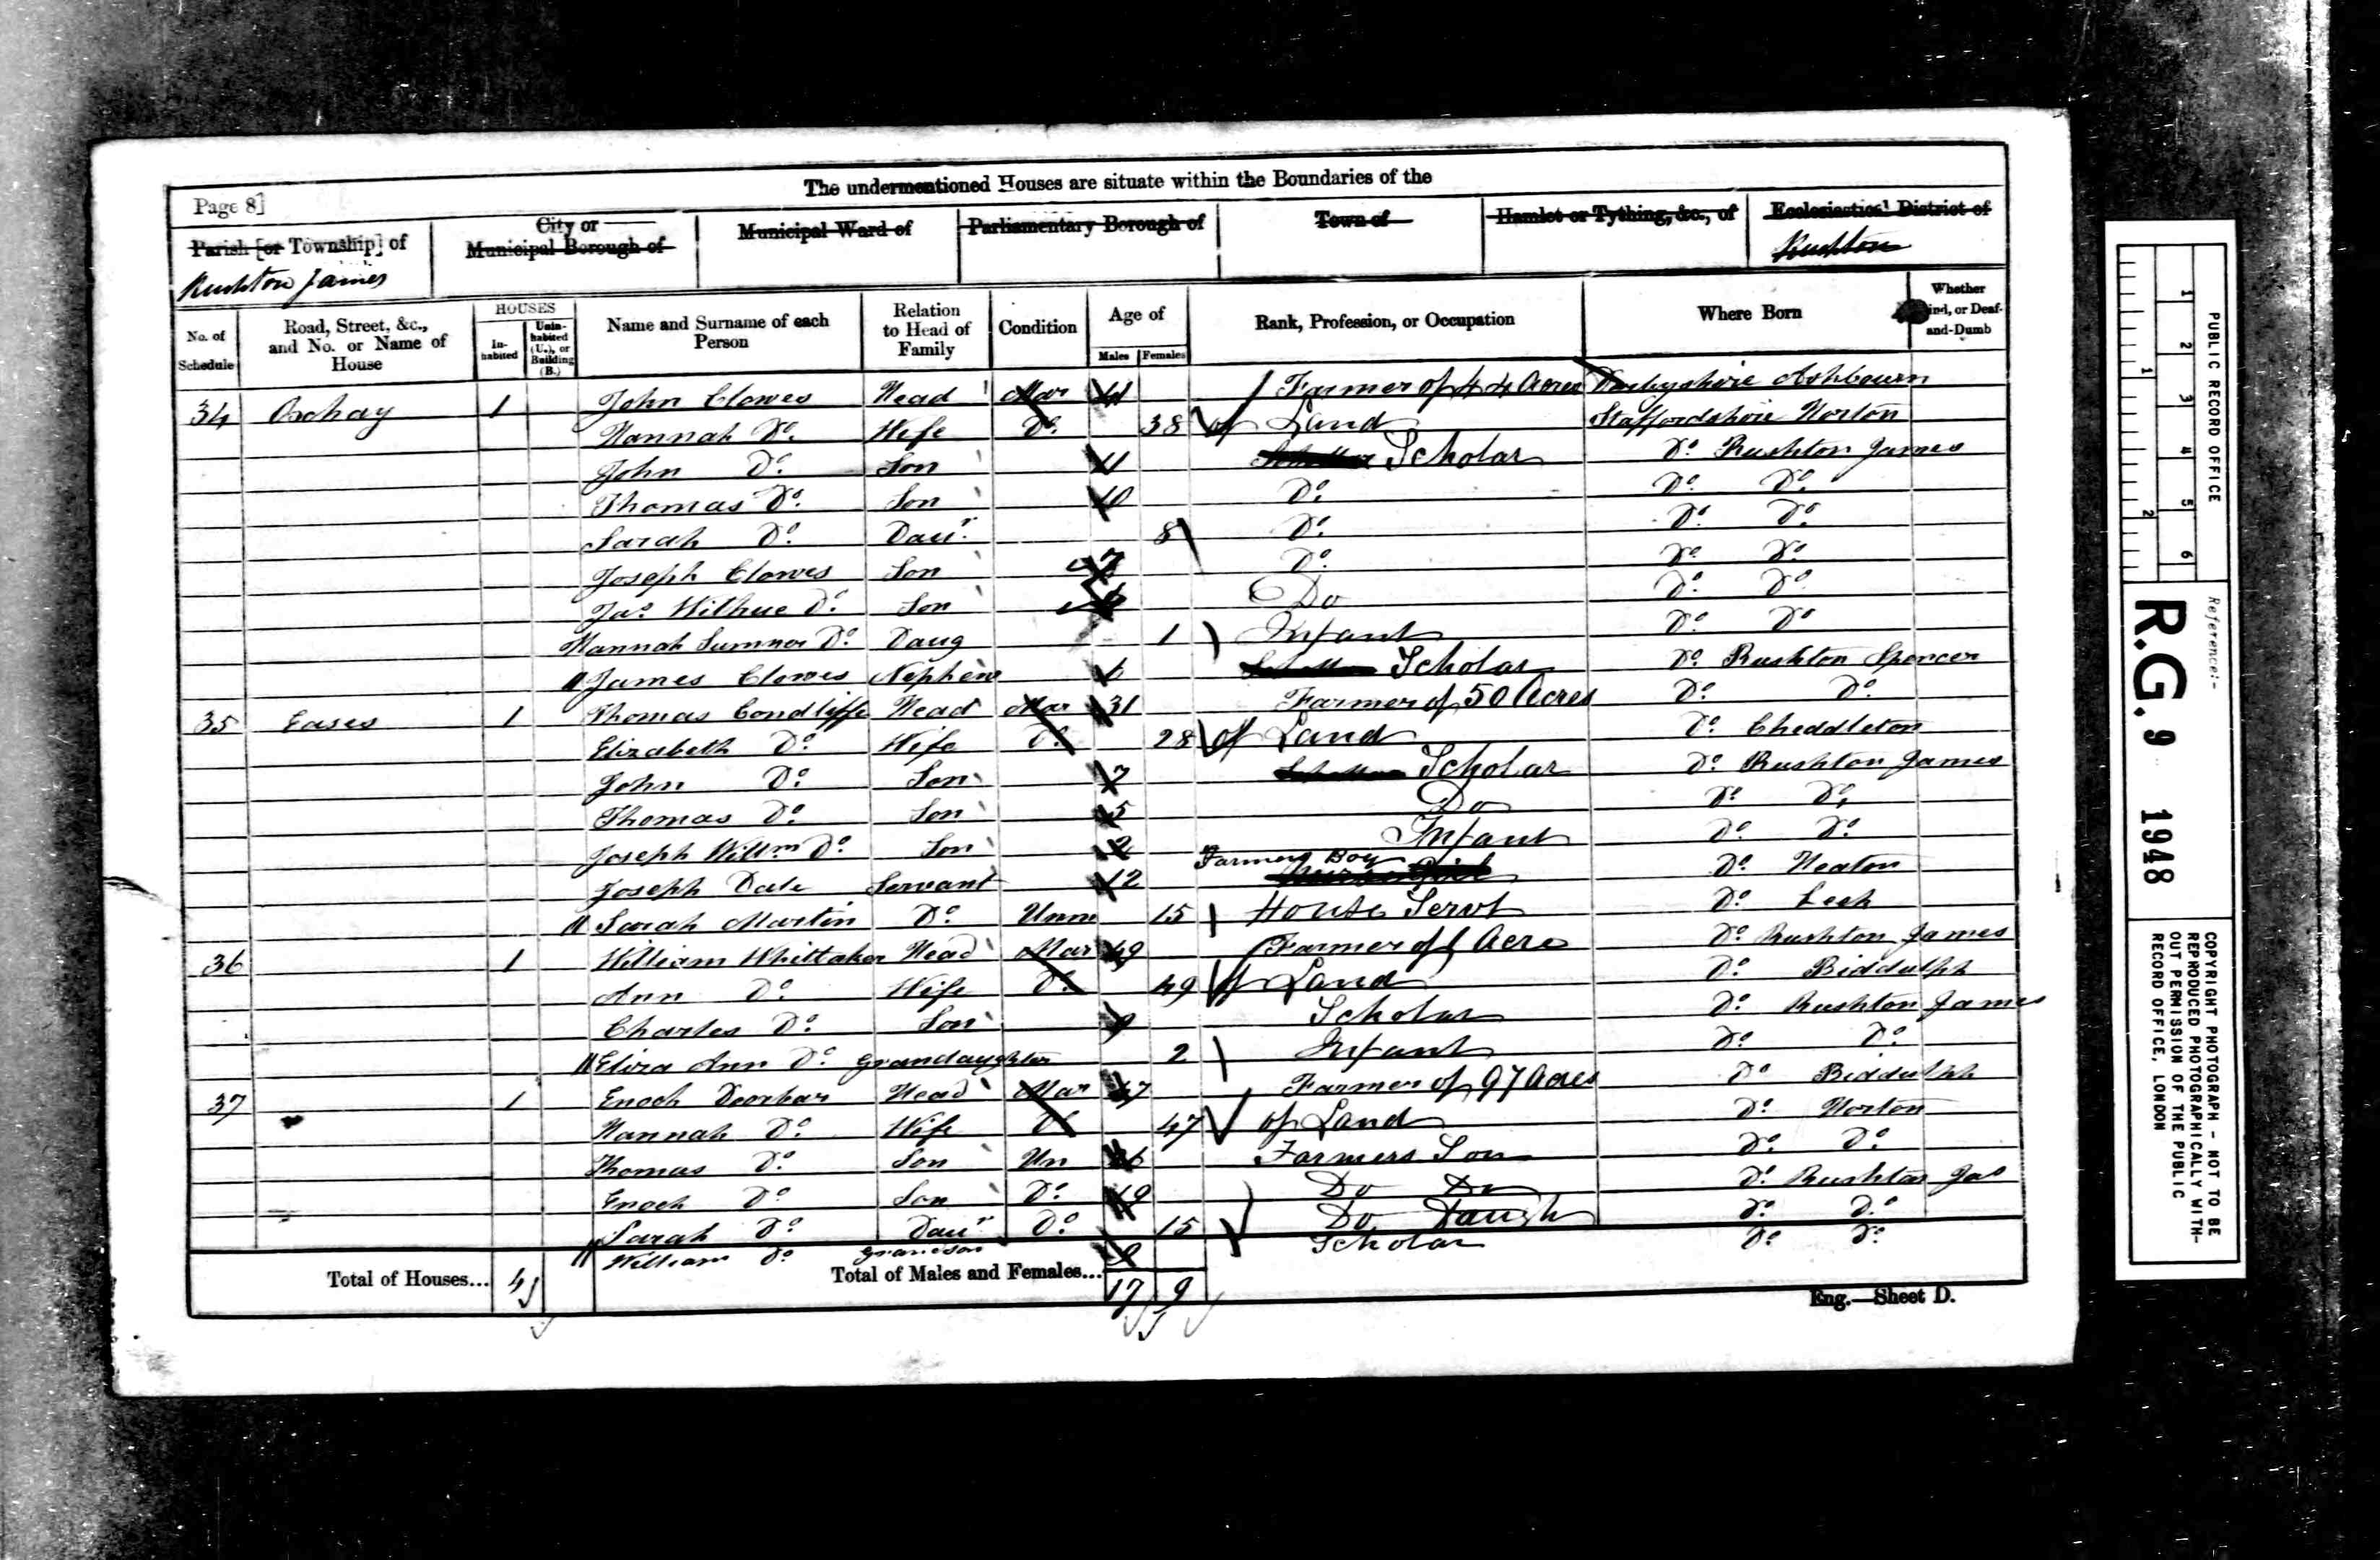 The undermentioned Houses are situate within the Boundaries of the
Page 8]
Parish [or Township] of
Rushton James
City or
Municipal Borough of
Municipal Ward of
Parliamentary Borough of
Town of
Hamlet or Tything, &c., of
Ecclesiastical District of
Rushton
No. of Schedule
Road, Street, &c., and No. or Name of House
HOUSES
In-habited
Unin-habited (U.), or Building (B.)
Name and Surname of each Person
Relation to Head of Family
Condition
Age of
Males
Females
Rank, Profession, or Occupation
Where Born
Whether ind, or Deaf-and-Dumb
34 Oxhay 1 John Clowes Head Mar 41 Farmer of 44 Acres Derbyshire Ashbourn
Hannah Do. Wife Do. 38 of Land Staffordshire Norton
John Do. Son 11 Scholar Do. Rushton James
Thomas Do. Son 10 Do. Do. Do.
Sarah Do. Daur. 8 Do. Do. Do.
Joseph Clowes Son 7 Do. Do. Do.
Jas. Do. Son Do Do. Do.
Hannah Sumner Do. Daug 1 Infant Do. Do.
James Clowes Nephew 6 Scholar Do. Rushton Spencer
35 Eases 1 Thomas Condliffe Head Mar 31 Farmer of 50 Acres Do. Do.
Elizabeth Do. Wife Do. 28 of Land Do. Cheddleton
John Do. Son 7 Scholar Do. Rushton James
Thomas Do. Son 5 Do Do. Do.
Joseph Willm Do. Son 2 Infant Do. Do.
Joseph Dale Servant 12 Farmers Boy Do. Heaton
Sarah Martin Do. Unm 15 House Servt Do. Leek
36 1 William Whittaker Head Mar 49 Farmer of 1 Acre Do. Rushton James
Ann Do. Wife Do. 49 of Land Do. Biddulph
Charles Do. Son 9 Scholar Do. Rushton James
Eliza Ann Do. Grandaughter 2 Infant Do. Do.
37 1 Enoch Doorbar Head Mar 47 Farmer of 97 Acres Do. Biddulph
Hannah Do. Wife Do 47 of Land Do. Norton
Thomas Do. Son Un 26 Farmers Son Do. Do.
Enoch Do Son Do. 19 Do Do Do. Rushton Jas
Sarah Do. Daur Do. 15 Do. Daugh Do. Do.
William Do. Grandson Scholar Do. Do.
Total of Houses... 4
Total of Males and Females... 17 9
Eng.—Sheet D.
PUBLIC RECORD OFFICE
1 2 3 4 5 6
1 2
Reference:-
R.G. 9 1948
COPYRIGHT PHOTOGRAPH - NOT TO BE
REPRODUCED PHOTOGRAPHICALLY WITH-
OUT PERMISSION OF THE PUBLIC
RECORD OFFICE, LONDON